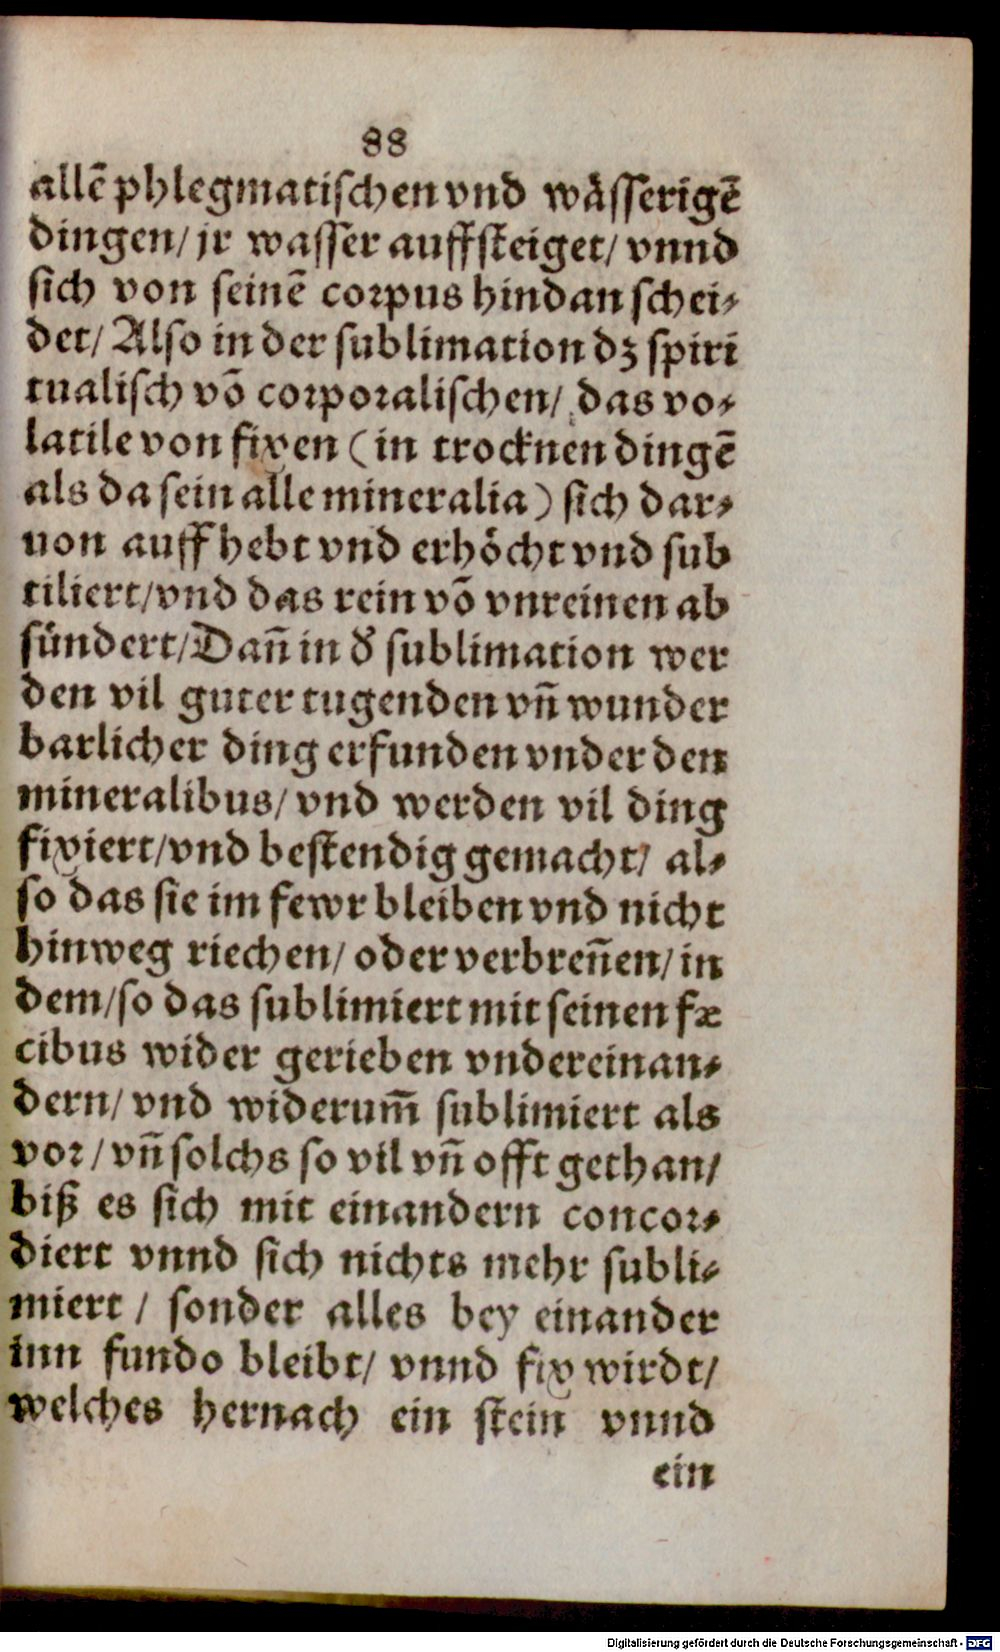 88
allẽ phlegmatischen vnd wässerigẽ
dingen/ jr wasser auffsteiget/ vnnd
sich von seinẽ corpus hindan schei⸗
det/ Also in der sublimation dz spiri
tualisch võ corporalischen/ das vo⸗
latile von fixen (in trocknen dingẽ
als da sein alle mineralia) sich dar⸗
uon auff hebt vnd erhöcht vnd sub
tiliert/ vnd das rein võ vnreinen ab
sündert/ Dañ in d̕ sublimation wer
den vil guter tugenden vñ wunder
barlicher ding erfunden vnder den
mineralibus/ vnd werden vil ding
fixiert/ vnd bestendig gemacht/ al⸗
so das sie im fewr bleiben vnd nicht
hinweg riechen/ oder verbreñen/ in
dem/ so das sublimiert mit seinen fæ
cibus wider gerieben vndereinan⸗
dern/ vnd widerum̃ sublimiert als
vor/ vñ solchs so vil vñ offt gethan/
biß es sich mit einandern concor⸗
diert vnnd sich nichts mehr subli⸗
miert/ sonder alles bey einander
inn fundo bleibt/ vnnd fix wirdt/
welches hernach ein stein vnnd
ein
Digitalisierung gefördert durch die Deutsche Forschungsgemeinschaft - DFG